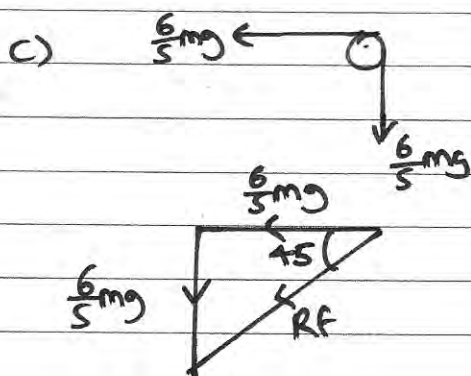 c)
6/5 mg
6/5 mg
6/5 mg
45
6/5 mg
RF